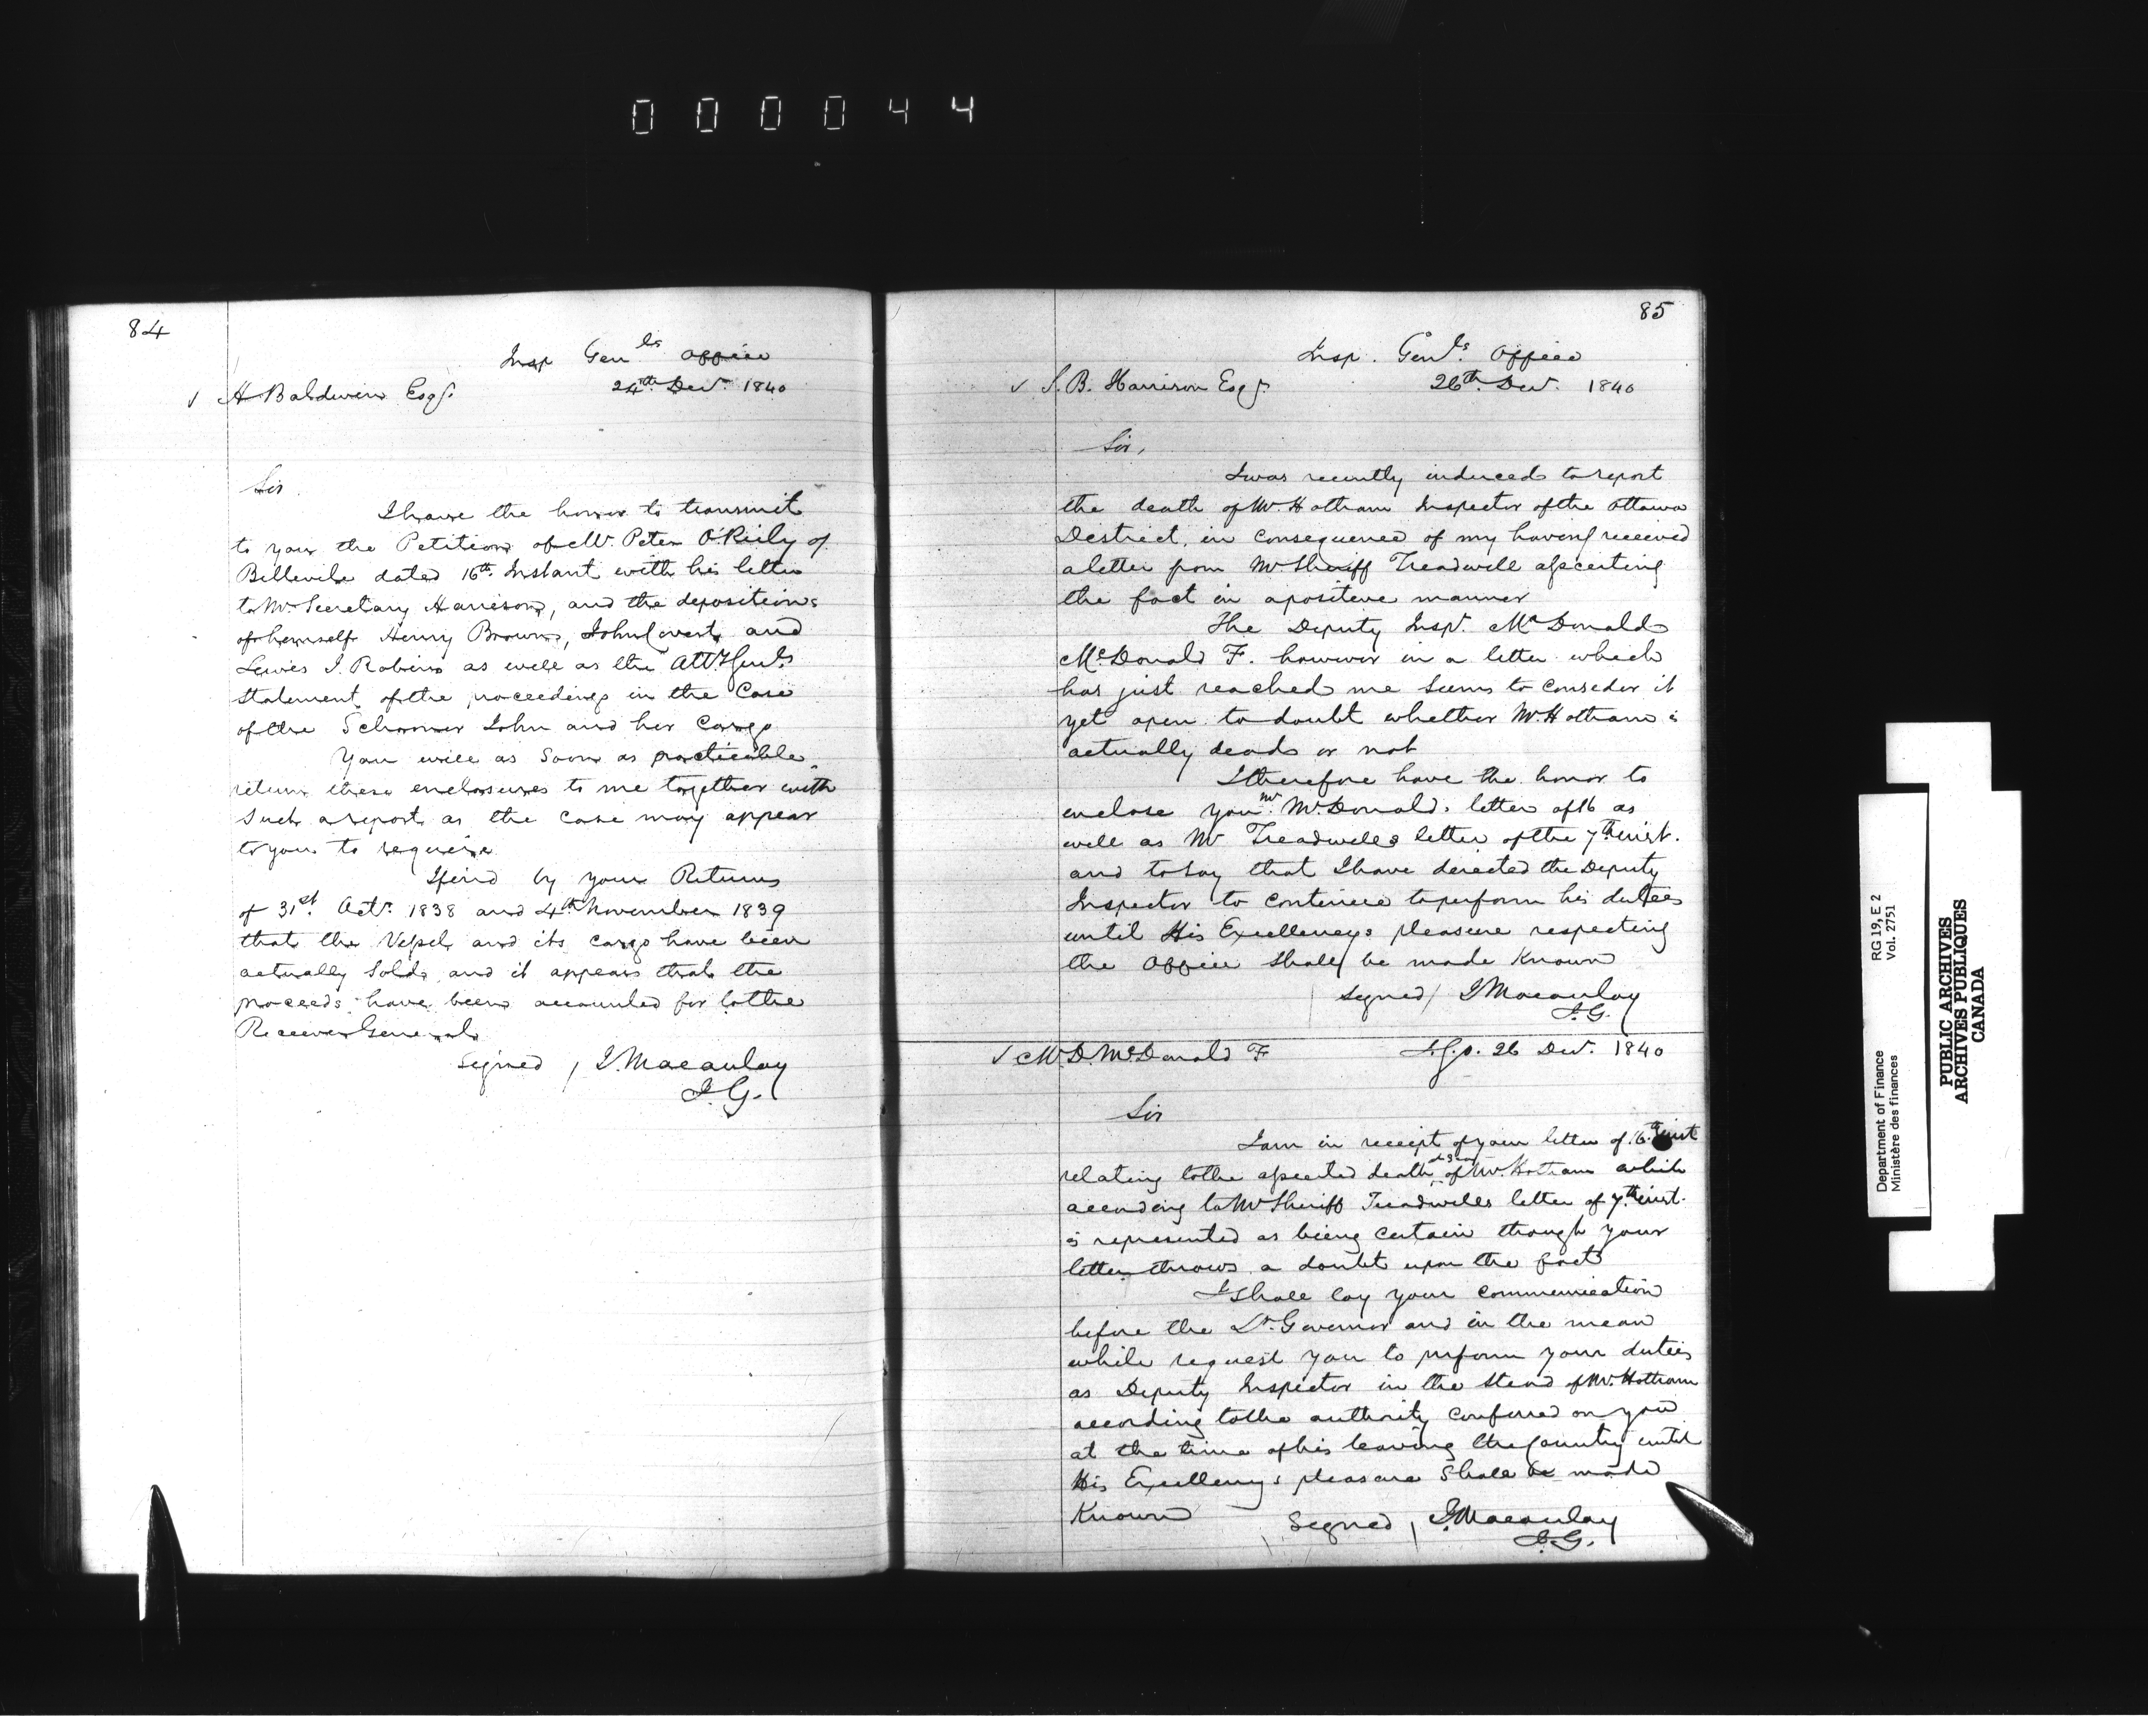 000044
84
Insp Genls Office
24th Decr. 1840
✓ A Baldwin Esqr.
Sir
I have the honor to transmit
to you the Petition of Mr. Peter O'Reily of
Belleville dated 16th. Instant with his letter
to Mr. Secretary Harrison, and the depositions
of himself Henry Brown, John Covert, and
Lewis J. Robins as well as the Atty Genls
statement of the proceedings in the Case
of the Schooner John and her Cargo
You will as soon as practicable
return these enclosures to me together with
such a report as the case may appear
to you to require
I find by your Returns
of 31st. Octr. 1838 and 4th November 1839
that the Vessel and its cargo have been
actually sold, and it appears that the
proceeds have been accounted for to the
Receiver General
Signed / J. Macaulay
I. G.
85
Insp. Genls. Office
26th. Decr. 1840
✓ S. B. Harrison Esqr.
Sir,
I was recently induced to report
the death of Mr. Hotham Inspector of the Ottawa
District, in consequence of my having received
a letter from Mr Sheriff Treadwell asserting
the fact in a positive manner
The Deputy Inspr. Mr Donald
McDonald F. however in a letter which
has just reached me seems to consider it
yet open to doubt whether Mr. Hotham is
actually dead or not
I therefore have the honor to
enclose you Mr. McDonalds letter of 16 as
well as Mr Treadwells letter of the 7th inst.
and to say that I have directed the Deputy
Inspector to continue to perform his duties
until His Excellencys pleasure respecting
the Office shall be made Known
Signed / J Macaulay
I. G.
✓ Mr. D. McDonald F
I. G. O. 26 Decr. 1840
Sir
I am in receipt of your letter of 16th inst
relating to the asserted death of Mr. Hotham which
according to Mr Sheriff Treadwells letter of 7th inst.
is represented as being certain though your
letter throws a doubt upon the fact
I shall lay your communication
before the Lt. Governor and in the mean
while request you to perform your duties
as Deputy Inspector in the stead of Mr. Hotham
according to the authority conferred on you
at the time of his leaving the Country until
His Excellencys pleasure shall be made
Known
Signed / J. Macaulay
I. G.
RG 19, E 2
Vol. 2751
Department of Finance
Ministère des finances
PUBLIC ARCHIVES
ARCHIVES PUBLIQUES
CANADA